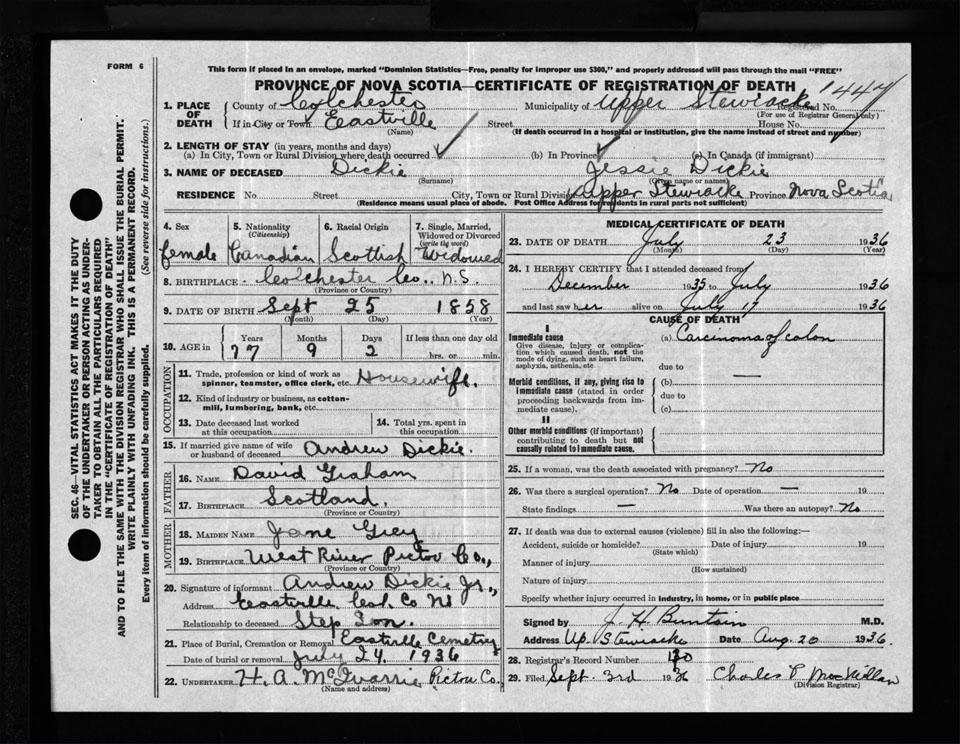 FORM 6
This form if placed in an envelope, marked "Dominion Statistics—Free, penalty for improper use $300," and properly addressed will pass through the mail "FREE"
PROVINCE OF NOVA SCOTIA—CERTIFICATE OF REGISTRATION OF DEATH
1447
1. PLACE OF DEATH County of Colchester Municipality of Upper Stewiacke Registered No.
(For use of Registrar General only)
If in City or Town Eastville Street House No.
(Name) (If death occurred in a hospital or institution, give the name instead of street and number)
2. LENGTH OF STAY (in years, months and days)
(a) In City, Town or Rural Division where death occurred (b) In Province (c) In Canada (if immigrant)
3. NAME OF DECEASED Dickie Jessie Dickie
(Surname) (Given name or names)
RESIDENCE No. Street City, Town or Rural Division Upper Stewiacke Province Nova Scotia
(Residence means usual place of abode. Post Office Address for residents in rural parts not sufficient)
4. Sex 5. Nationality (Citizenship) 6. Racial Origin 7. Single, Married, Widowed or Divorced (write the word)
female Canadian Scottish Widowed
8. BIRTHPLACE Colchester Co., N.S.
(Province or Country)
9. DATE OF BIRTH Sept 25 1858
(Month) (Day) (Year)
10. AGE in Years Months Days If less than one day old
77 9 2 hrs. or min.
OCCUPATION
11. Trade, profession or kind of work as spinner, teamster, office clerk, etc. Housewife.
12. Kind of industry or business, as cotton-mill, lumbering, bank, etc.
13. Date deceased last worked at this occupation 14. Total yrs. spent in this occupation
15. If married give name of wife or husband of deceased Andrew Dickie.
FATHER
16. NAME David Graham
17. BIRTHPLACE Scotland,
(Province or Country)
MOTHER
18. MAIDEN NAME Jane Grey
19. BIRTHPLACE West River Pictou Co.,
(Province or Country)
20. Signature of informant Andrew Dickie Jr.,
Address Eastville Col. Co NS
Relationship to deceased Step Son.
21. Place of Burial, Cremation or Removal Eastville Cemetry
Date of burial or removal July 24, 1936
22. UNDERTAKER H. A. McQuarrie Pictou Co.
(Name and address)
MEDICAL CERTIFICATE OF DEATH
23. DATE OF DEATH July 23 1936
(Month) (Day) (Year)
24. I HEREBY CERTIFY that I attended deceased from
December 1935 to July 1936
and last saw her alive on July 17 1936
CAUSE OF DEATH
I
Immediate cause (a) Carcinoma of colon
Give disease, injury or complication which caused death, not the mode of dying, such as heart failure, asphyxia, asthenia, etc
due to
Morbid conditions, if any, giving rise to immediate cause (stated in order proceeding backwards from immediate cause).
(b) —
due to
(c)
II
Other morbid conditions (if important) contributing to death but not causally related to immediate cause.
25. If a woman, was the death associated with pregnancy? No
26. Was there a surgical operation? No Date of operation — 19
State findings — Was there an autopsy? No
27. If death was due to external causes (violence) fill in also the following:—
Accident, suicide or homicide? Date of injury 19
(State which)
Manner of injury
(How sustained)
Nature of injury
Specify whether injury occurred in industry, in home, or in public place
Signed by J. H. Buntain M.D.
Address Up. Stewiacke Date Aug. 20 1936.
28. Registrar's Record Number 130
29. Filed Sept. 3rd 1936 Charles P McMillan
(Division Registrar)
SEC. 46—VITAL STATISTICS ACT MAKES IT THE DUTY
OF THE UNDERTAKER OR PERSON ACTING AS UNDER-
TAKER TO OBTAIN ALL THE PARTICULARS REQUIRED
IN THE "CERTIFICATE OF REGISTRATION OF DEATH"
AND TO FILE THE SAME WITH THE DIVISION REGISTRAR WHO SHALL ISSUE THE BURIAL PERMIT.
WRITE PLAINLY WITH UNFADING INK. THIS IS A PERMANENT RECORD.
Every item of information should be carefully supplied. (See reverse side for instructions.)